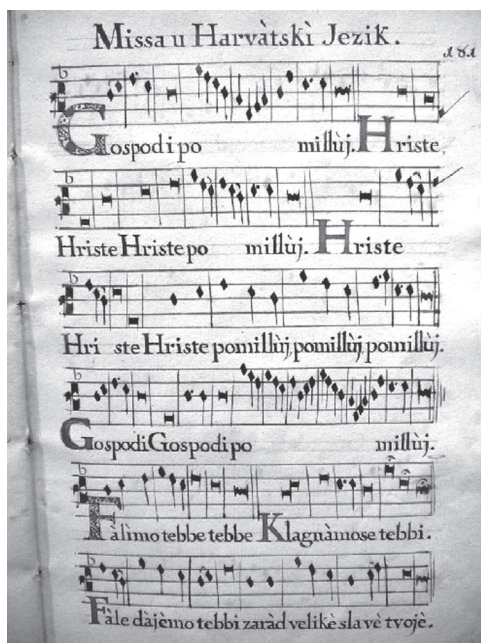 Missa u Harvàtskì Jezik.
Gospodi po millùj. Hriste
Hriste Hriste po millùj. Hriste
Hri ste Hriste pomillùj, pomillùj, pomillùj.
Gospodi Gospodi po millùj.
Fàlimo tebbe tebbe Klagnàmose tebbi.
Fàle dàjèmo tebbi zaràd velikè sla vè tvojè.